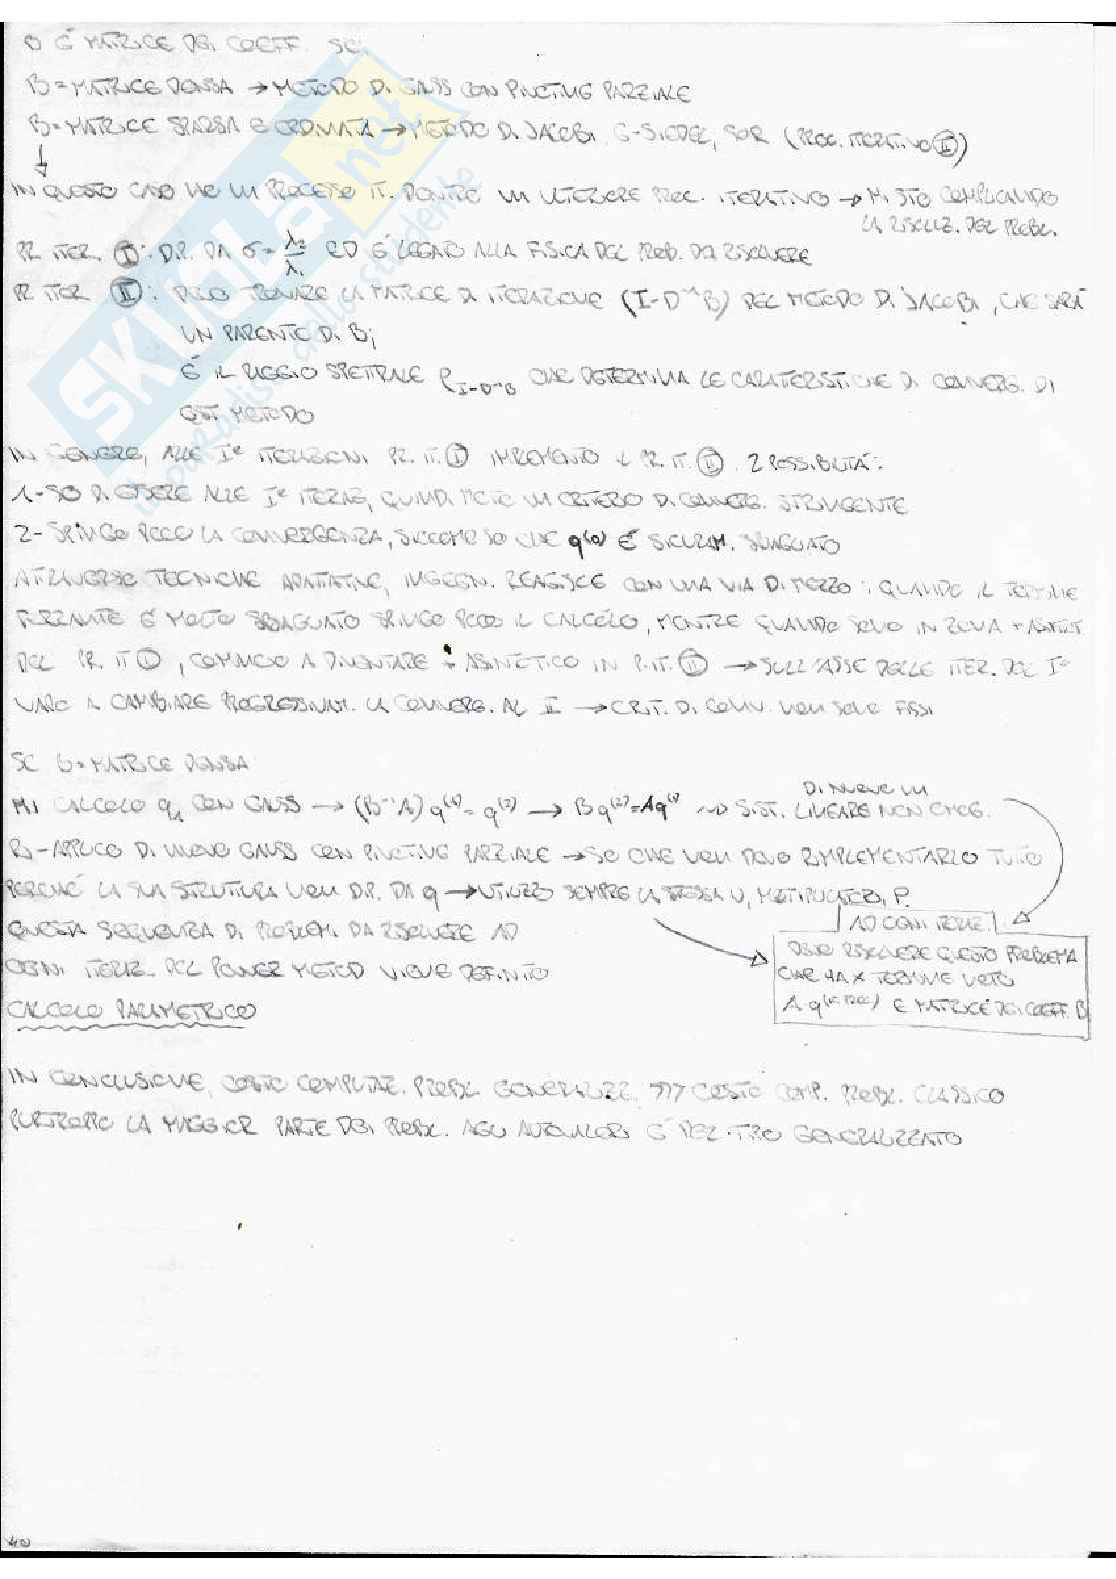 B È MATRICE DEI COEFF. SE:
B = MATRICE DENSA → METODO DI GAUSS CON PIVOTING PARZIALE
B = MATRICE SPARSA E ORDINATA → METODO DI JACOBI, G-SIEDEL, SOR (PROC. ITERATIVO II)
IN QUESTO CASO HO UN PROCESSO IT. DENTRO UN ULTERIORE PROC. ITERATIVO → MI STO COMPLICANDO
LA RISOLUZ. DEL PROBL.
PR. ITER. I: DIP. DA σ = λ₂/λ₁ ED È LEGATO ALLA FISICA DEL PROB. DA RISOLVERE
PR ITER II: DEVO TROVARE LA MATRICE DI ITERAZIONE (I-D⁻¹B) DEL METODO DI JACOBI, CHE SARÀ
UN PARENTE DI B;
È IL RAGGIO SPETTRALE ρ I-D⁻¹B CHE DETERMINA LE CARATTERISTICHE DI CONVERG. DI
QST METODO
IN GENERE, ALLE Iᵉ ITERAZIONI PR. IT. I IMPLEMENTO IL PR. IT. II. 2 POSSIBILITÀ:
1- SO DI ESSERE ALLE Iᵉ ITERAZ, QUINDI METTO UN CRITERIO DI CONVERG. STRINGENTE
2- SPINGO POCO LA CONVERGENZA, SICCOME SO CHE q(0) È SICURAM. SBAGLIATO
ATTRAVERSO TECNICHE ADATTATIVE, INGEGN. REAGISCE CON UNA VIA DI MEZZO: QUANDO IL TERMINE
FORZANTE È MOLTO SBAGLIATO SPINGO POCO IL CALCOLO, MENTRE QUANDO SONO IN ZONA + ASINT
DEL PR. IT I, COMINCIO A DIVENTARE + ASINTOTICO IN P. IT. II → SULL'ASSE DELLE ITER. DEL Iº
VADO A CAMBIARE PROGRESSIVAM. LA CONVERG. AL II → CRIT. DI CONV. NON SONO FISSI
SE B = MATRICE DENSA
MI CALCOLO q₁ CON GAUSS → (B⁻¹A) q⁽¹⁾ = q⁽²⁾ → B q⁽²⁾ = A q⁽¹⁾ ⇝ DI NUOVO UN SIST. LINEARE NON OMOG.
RI-APPLICO DI NUOVO GAUSS CON PIVOTING PARZIALE → SO CHE NON DEVO RIMPLEMENTARLO TUTTO
PERCHÉ LA SUA STRUTTURA NON DIP. DA q → UTILIZZO SEMPRE LA STESSA U, MOLTIPLICATORI, P.
QUESTA SEQUENZA DI PROBLEMI DA RISOLVERE AD
OGNI ITERAZ. DEL POWER METOD VIENE DEFINITO
CALCOLO PARAMETRICO
AD OGNI ITERAZ.
DEVO RISOLVERE QUESTO PROBLEMA
CHE HA X TERMINE NOTO
A q E MATRICE DEI COEFF. B
IN CONCLUSIONE, COSTO COMPUTAZ. PROBL. GENERALIZZ. >>> COSTO COMP. PROBL. CLASSICO
PURTROPPO LA MAGGIOR PARTE DEI PROBL. AGLI AUTOVALORI È DEL TIPO GENERALIZZATO
40
SKUOLA.net
il paradiso dello studente